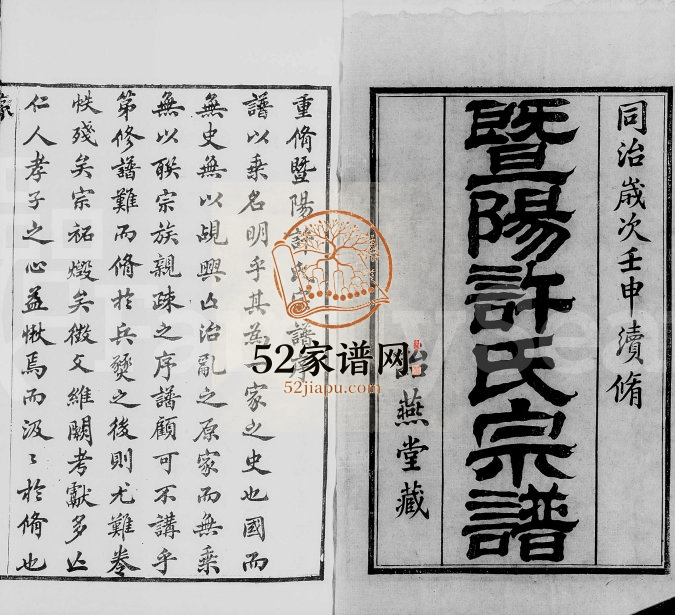 同治歲次壬申續脩
暨陽許氏宗譜
詒燕堂藏
重脩暨陽許氏宗譜序
譜以乘名明乎其為一家之史也國而
無史無以覘興亾治亂之原家而無乘
無以聯宗族親疎之序譜顧可不講乎
第修譜難而脩於兵燹之後則尤難卷
帙殘矣宗祏燬矣徵文維闕考獻多亾
仁人孝子之心益愀焉而汲〻於脩也
52家谱网
52jiapu.com